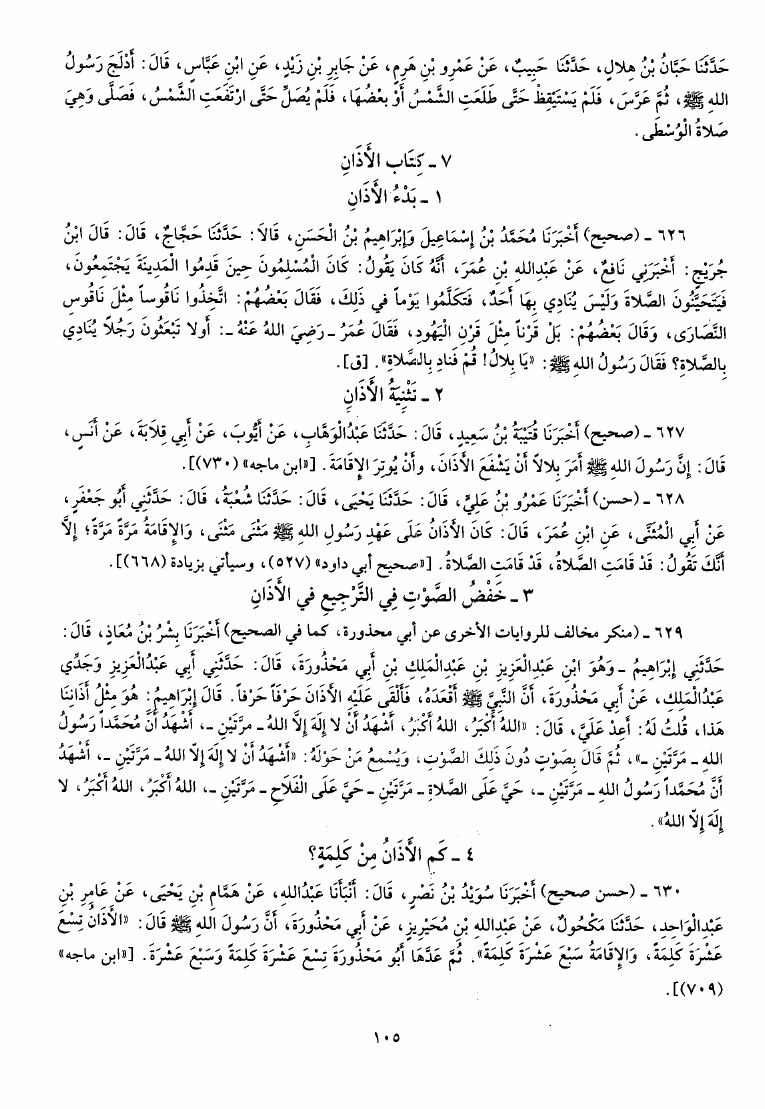 حَدَّثَنَا حَبَّانُ بْنُ هِلالٍ، حَدَّثَنَا حَبِيبٌ، عَنْ عَمْرِو بْنِ هَرِمٍ، عَنْ جَابِرِ بْنِ زَيْدٍ، عَنِ ابْنِ عَبَّاسٍ، قَالَ: أَدْلَجَ رَسُولُ
اللهِ ﷺ، ثُمَّ عَرَّسَ، فَلَمْ يَسْتَيْقِظْ حَتَّى طَلَعَتِ الشَّمْسُ أَوْ بَعْضُهَا، فَلَمْ يُصَلِّ حَتَّى ارْتَفَعَتِ الشَّمْسُ، فَصَلَّى وَهِيَ
صَلاةُ الْوُسْطَى.
٧ ـ كِتَاب الأَذَانِ
١ ـ بَدْءُ الأَذَانِ
٦٢٦ ـ (صحيح) أَخْبَرَنَا مُحَمَّدُ بْنُ إِسْمَاعِيلَ وَإِبْرَاهِيمُ بْنُ الْحَسَنِ، قَالاَ: حَدَّثَنَا حَجَّاجٌ، قَالَ: قَالَ ابْنُ
جُرَيْجٍ: أَخْبَرَنِي نَافِعٌ، عَنْ عَبْدِاللهِ بْنِ عُمَرَ، أَنَّهُ كَانَ يَقُولُ: كَانَ الْمُسْلِمُونَ حِينَ قَدِمُوا الْمَدِينَةَ يَجْتَمِعُونَ،
فَيَتَحَيَّنُونَ الصَّلاةَ وَلَيْسَ يُنَادِي بِهَا أَحَدٌ، فَتَكَلَّمُوا يَوْماً فِي ذَلِكَ، فَقَالَ بَعْضُهُمْ: اتَّخِذُوا نَاقُوساً مِثْلَ نَاقُوسِ
النَّصَارَى، وَقَالَ بَعْضُهُمْ: بَلْ قَرْناً مِثْلَ قَرْنِ الْيَهُودِ، فَقَالَ عُمَرُ ـ رَضِيَ اللهُ عَنْهُ ـ: أَولا تَبْعَثُونَ رَجُلاً يُنَادِي
بِالصَّلاةِ؟ فَقَالَ رَسُولُ اللهِ ﷺ: «يَا بِلالُ! قُمْ فَنَادِ بِالصَّلاةِ». [ق].
٢ ـ تَثْنِيَةُ الأَذَانِ
٦٢٧ ـ (صحيح) أَخْبَرَنَا قُتَيْبَةُ بْنُ سَعِيدٍ، قَالَ: حَدَّثَنَا عَبْدُالْوَهَّابِ، عَنْ أَيُّوبَ، عَنْ أَبِي قِلاَبَةَ، عَنْ أَنَسٍ،
قَالَ: إِنَّ رَسُولَ اللهِ ﷺ أَمَرَ بِلاَلاً أَنْ يَشْفَعَ الأَذَانَ، وأَنْ يُوتِرَ الإِقَامَةَ. [«ابن ماجه» (٧٣٠)].
٦٢٨ ـ (حسن) أَخْبَرَنَا عَمْرُو بْنُ عَلِيٍّ، قَالَ: حَدَّثَنَا يَحْيَى، قَالَ: حَدَّثَنَا شُعْبَةُ، قَالَ: حَدَّثَنِي أَبُو جَعْفَرٍ،
عَنْ أَبِي الْمُثَنَّى، عَنِ ابْنِ عُمَرَ، قَالَ: كَانَ الأَذَانُ عَلَى عَهْدِ رَسُولِ اللهِ ﷺ مَثْنَى مَثْنَى، وَالإِقَامَةُ مَرَّةً مَرَّةً؛ إِلاَّ
أَنَّكَ تَقُولُ: قَدْ قَامَتِ الصَّلاةُ، قَدْ قَامَتِ الصَّلاةُ. [«صحيح أبي داود» (٥٢٧)، وسيأتي بزيادة (٦٦٨)].
٣ ـ خَفْضُ الصَّوْتِ فِي التَّرْجِيعِ في الأَذَانِ
٦٢٩ ـ (منكر مخالف للروايات الأخرى عن أبي محذورة، كما في الصحيح) أَخْبَرَنَا بِشْرُ بْنُ مُعَاذٍ، قَالَ:
حَدَّثَنِي إِبْرَاهِيمُ ـ وَهُوَ ابْنِ عَبْدِالْعَزِيزِ بْنِ عَبْدِالْمَلِكِ بْنِ أَبِي مَحْذُورَةَ، قَالَ: حَدَّثَنِي أَبِي عَبْدُالْعَزِيزِ وَجَدِّي
عَبْدُالْمَلِكِ، عَنْ أَبِي مَحْذُورَةَ، أَنَّ النَّبِيَّ ﷺ أَقْعَدَهُ، فَأَلْقَى عَلَيْهِ الأَذَانَ حَرْفاً حَرْفاً. قَالَ إِبْرَاهِيمُ: هُوَ مِثْلُ أَذَانِنَا
هَذَا، قُلْتُ لَهُ: أَعِدْ عَلَيَّ، قَالَ: «اللهُ أَكْبَرُ، اللهُ أَكْبَرُ، أَشْهَدُ أَنْ لا إِلَهَ إِلَّا اللهُ ـ مَرَّتَيْنِ ـ، أَشْهَدُ أَنَّ مُحَمَّداً رَسُولُ
اللهِ ـ مَرَّتَيْنِ ـ»، ثُمَّ قَالَ بِصَوْتٍ دُونَ ذَلِكَ الصَّوْتِ، وَيُسْمِعُ مَنْ حَوْلَهُ: «أَشْهَدُ أَنْ لا إِلَهَ إِلاَّ اللهُ ـ مَرَّتَيْنِ ـ، أَشْهَدُ
أَنَّ مُحَمَّداً رَسُولُ اللهِ ـ مَرَّتَيْنِ ـ، حَيَّ عَلَى الصَّلاةِ ـ مَرَّتَيْنِ ـ حَيَّ عَلَى الْفَلَاحِ ـ مَرَّتَيْنِ ـ، اللهُ أَكْبَرُ، اللهُ أَكْبَرُ، لا
إِلَهَ إِلاَّ اللهُ».
٤ ـ كَمِ الأَذَانُ مِنْ كَلِمَةٍ؟
٦٣٠ ـ (حسن صحيح) أَخْبَرَنَا سُوَيْدُ بْنُ نَصْرٍ، قَالَ: أَنْبَأَنَا عَبْدُاللهِ، عَنْ هَمَّامِ بْنِ يَحْيَى، عَنْ عَامِرِ بْنِ
عَبْدِالْوَاحِدِ، حَدَّثَنَا مَكْحُولٌ، عَنْ عَبْدِاللهِ بْنِ مُحَيْرِيزٍ، عَنْ أَبِي مَحْذُورَةَ، أَنَّ رَسُولَ اللهِ ﷺ قَالَ: «الأَذَانُ تِسْعَ
عَشْرَةَ كَلِمَةً، وَالإِقَامَةُ سَبْعَ عَشْرَةَ كَلِمَةً». ثُمَّ عَدَّهَا أَبُو مَحْذُورَةَ تِسْعَ عَشْرَةَ كَلِمَةً وَسَبْعَ عَشْرَةَ. [«ابن ماجه»
(٧٠٩)].
١٠٥